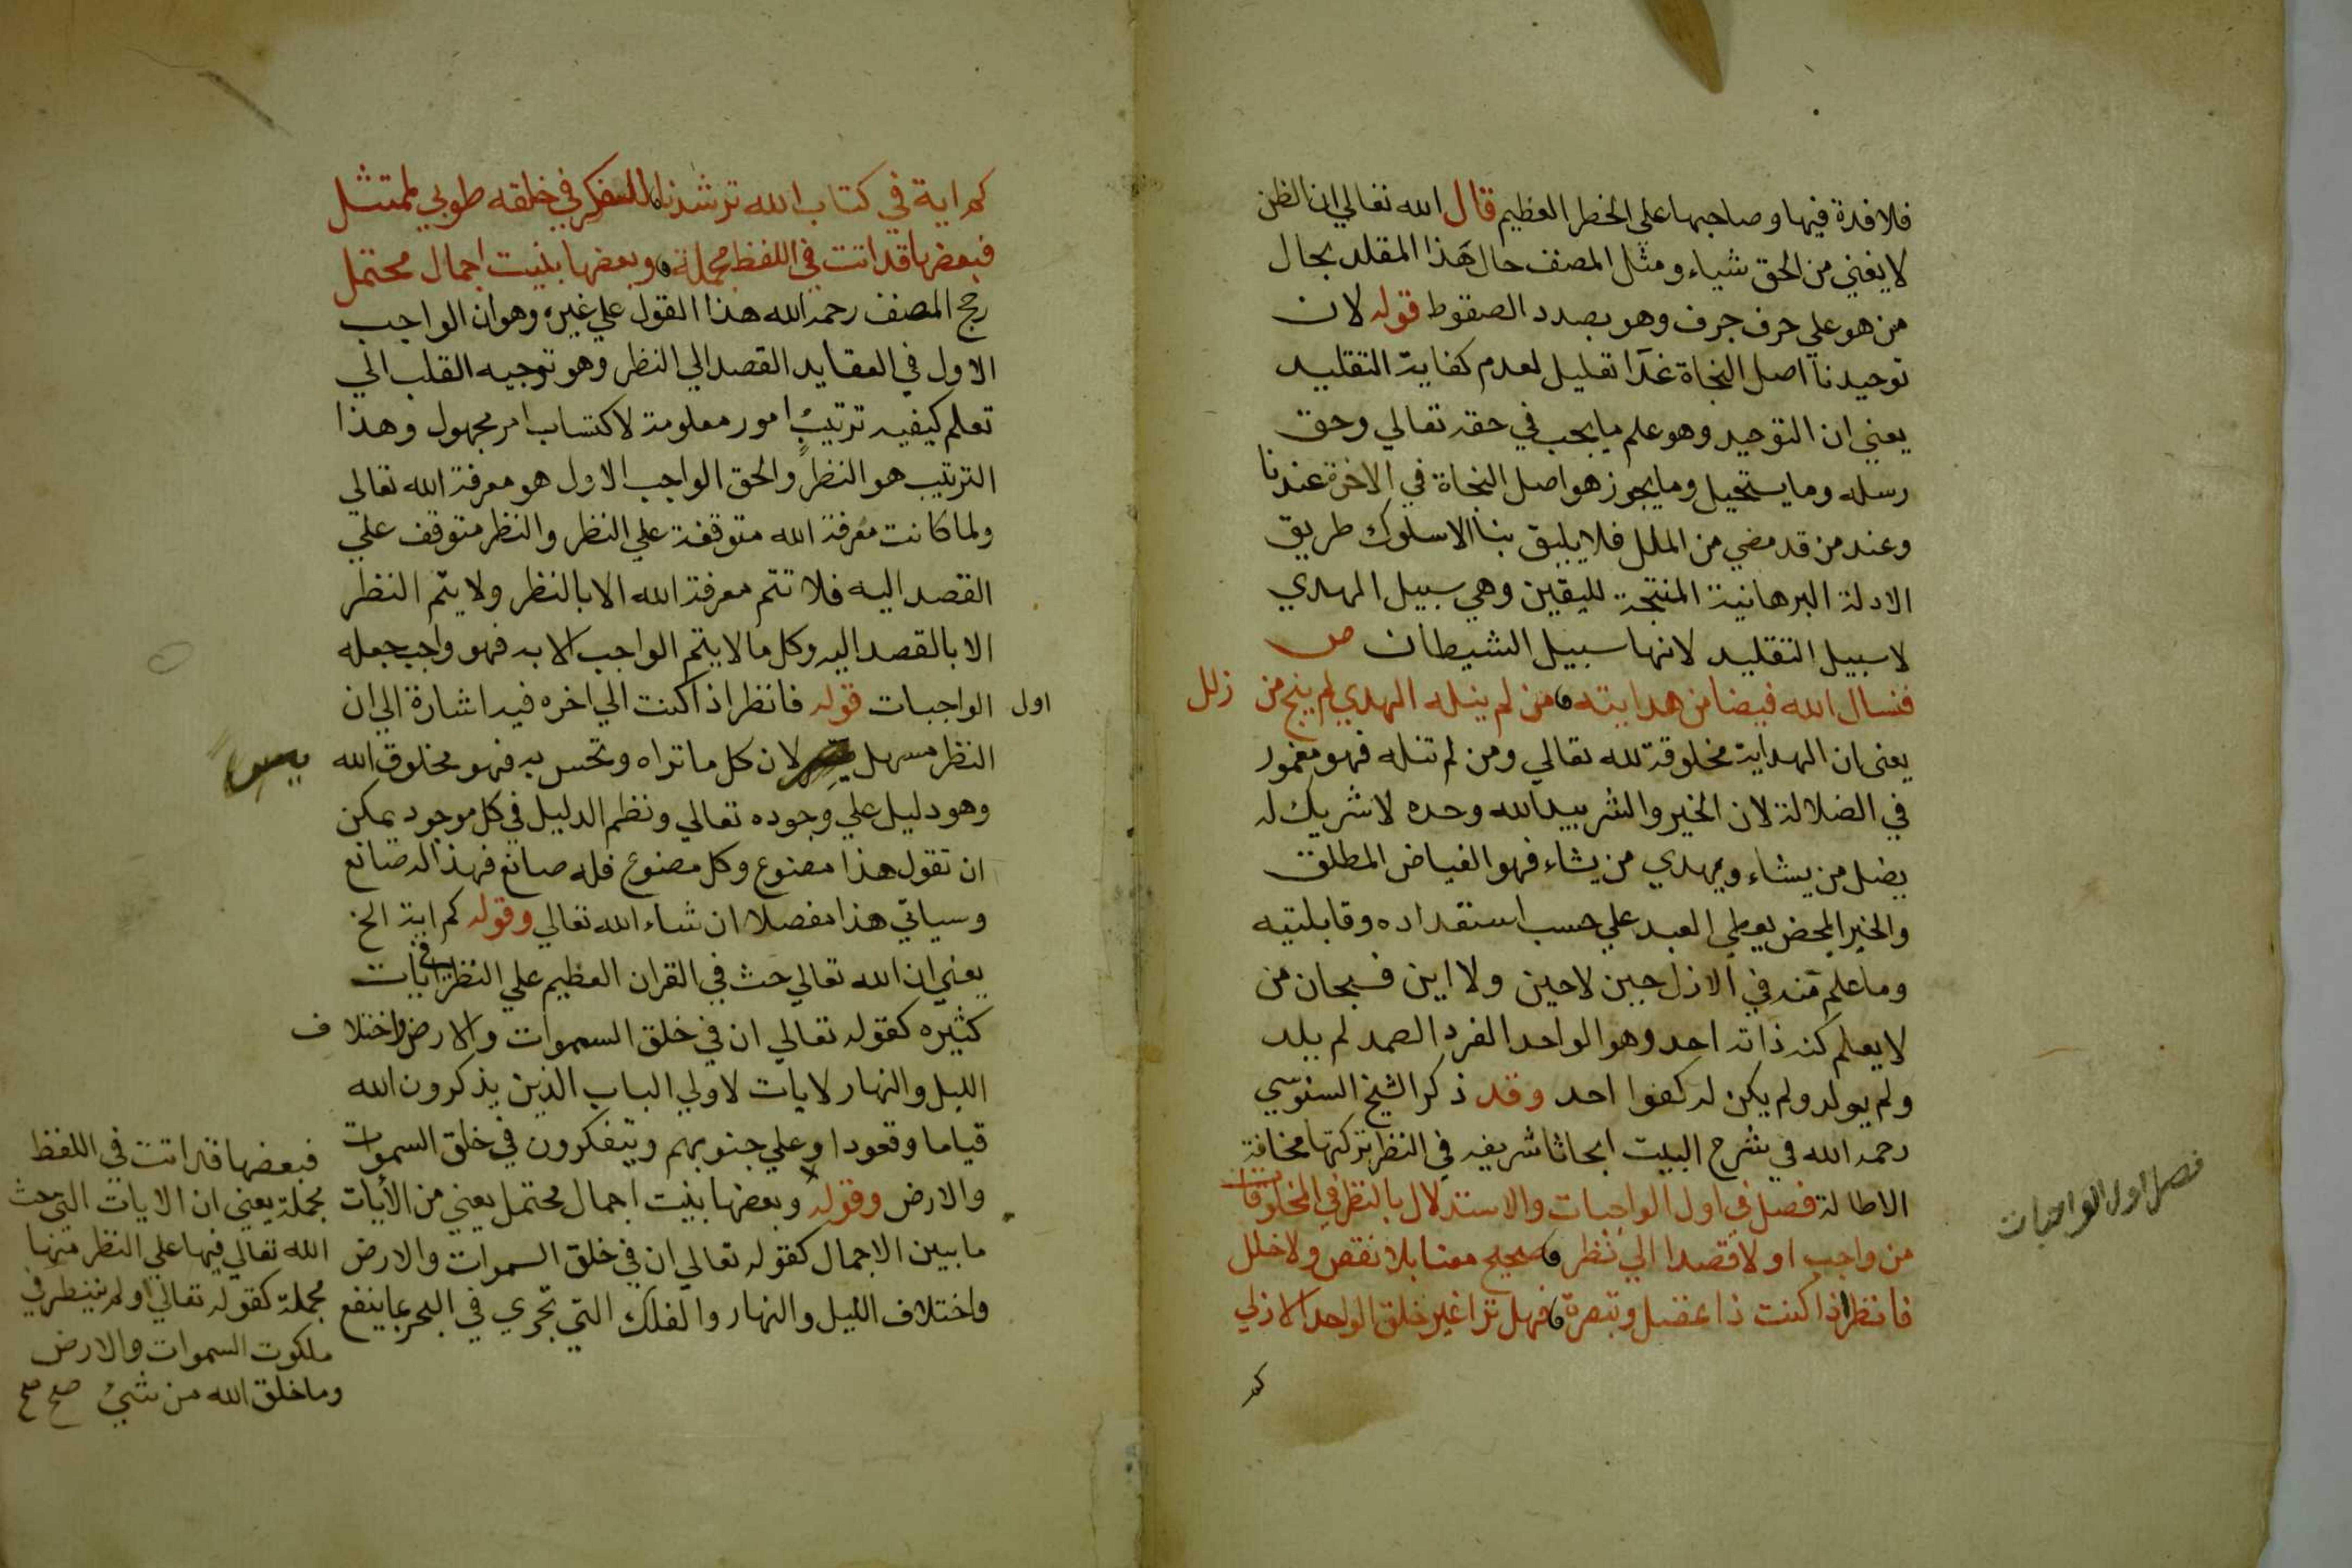 فلا فدة فيها وصاحبها علي الخطر العظيم قال الله تعالي ان الظن
لا يغني من الحق شياء ومثل المصنف حال هذا المقلد بحال
من هو علي حرف جرف وهو بصدد الصقوط قوله لان
توحيدنا اصل النجاة غدا تعليل لعدم كفاية التقليد
يعني ان التوحيد وهو علم ما يجب في حقه تعالي وحق
رسله وما يستحيل وما يجوز هو اصل النجاة في الاخرة عندنا
وعند من قد مضي من الملل فلا يليق بنا الا سلوك طريق
الادلة البرهانية المنتجة لليقين وهي سبيل المهدي
لا سبيل التقليد لانها سبيل الشيطان ص
فنسال الله فيضا من هدايته ومن لم ينله الهدي لم ينج من زلل
يعني ان الهداية مخلوقة لله تعالي ومن لم تنله فهو مغمور
في الضلالة لان الخير والشر بيد الله وحده لا شريك له
يضل من يشاء ويهدي من يشاء فهو الفياض المطلق
والخير المحض يعطي العبد علي حسب استعداده وقابليته
وما علم منه في الازل حين لا حين ولا اين فسبحان من
لا يعلم كنه ذاته احد وهو الواحد الفرد الصمد لم يلد
ولم يولد ولم يكن له كفوا احد وقد ذكر الشيخ السنوسي
رحمه الله في شرح البيت ابحاثا شريفه في النظر تركتها مخافة
الاطالة فصل في اول الواجبات والاستدلال بالنظر في المخلوقات
من واجب اولا قصدا الي نظر صحيح معنا بلا نقص ولا خلل
فانظر اذا كنت ذا عقل وتبصرة فهل ترا غير خلق الواحد الازلي
كم
فصل اول الواجبات
كم اية في كتاب الله ترشدنا للفكر في خلقه طوبي لممتثل
فبعضها قد اتت في اللفظ مجملة وبعضها بينت اجمال محتمل
رجح المصنف رحمه الله هذا القول علي غيره وهو ان الواجب
الاول في العقايد القصد الي النظر وهو توجيه القلب الي
تعلم كيفيه ترتيب امور معلومة لاكتساب امر مجهول وهذا
الترتيب هو النظر والحق الواجب الاول هو معرفة الله تعالي
ولما كانت معرفة الله متوقفة علي النظر والنظر متوقف علي
القصد اليه فلا تتم معرفة الله الا بالنظر ولا يتم النظر
الا بالقصد اليه وكل ما لا يتم الواجب الا به فهو واجب جعله
اول الواجبات قوله فانظر اذا كنت الي اخره فيه اشارة الي ان
النظر مسهل لان كل ما تراه وتحس به فهو مخلوق الله
وهو دليل علي وجوده تعالي ونظم الدليل في كل موجود يمكن
ان تقول هذا مصنوع وكل مصنوع فله صانع فهذا له صانع
وسياتي هذا مفصلا ان شاء الله تعالي وقوله كم اية الخ
يعني ان الله تعالي حث في القران العظيم علي النظر في ايات
كثيره كقوله تعالي ان في خلق السموات والارض واختلاف
الليل والنهار لايات لاولي الباب الذين يذكرون الله
قياما وقعودا وعلي جنوبهم ويتفكرون في خلق السموات
والارض وقوله وبعضها بينت اجمال محتمل يعني من الايات
ما بين الاجمال كقوله تعالي ان في خلق السموات والارض
واختلاف الليل والنهار والفلك التي تجري في البحر بما ينفع
فبعضها قد اتت في اللفظ
مجملة يعني ان الايات التي حث
الله تعالي فيها علي النظر منها
مجملة كقوله تعالي اولم ينظر في
ملكوت السموات والارض
وما خلق الله من شيئ صح صح